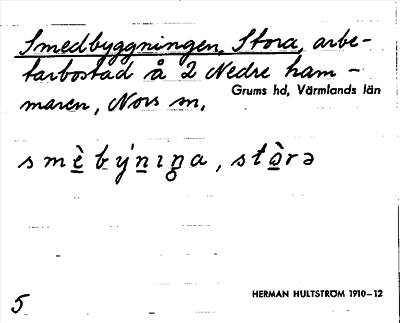 Smedbyggningen, Stora, arbe-
tarbostad å 2 Nedre ham-
maren, Nors sn.
Grums hd, Värmlands län
smè̱býṉıŋa, stò̱rə
HERMAN HULTSTRÖM 1910-12
5